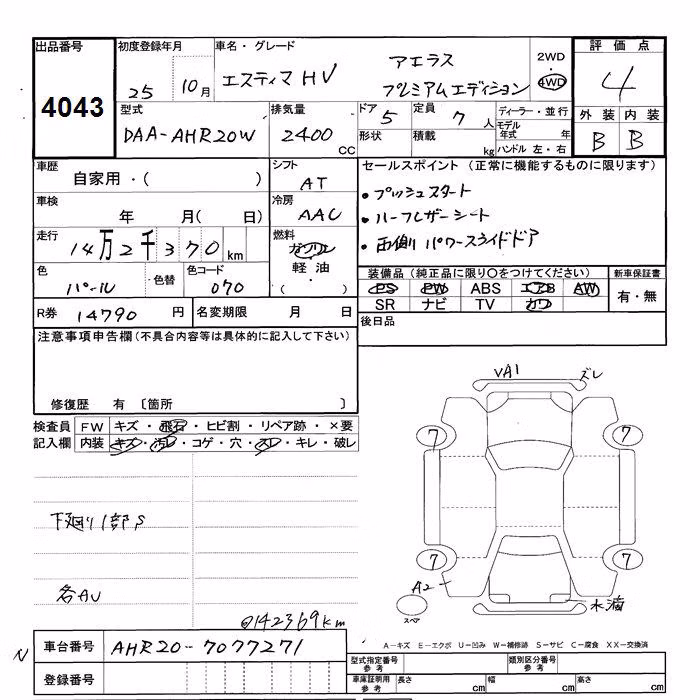 出品番号 初度登録年月 車名・グレード 2WD 評価点
4043 25 10月 エスティマHV アエラス プレミアムエディション ・4WD 4
型式 排気量 ドア 定員 ディーラー・並行 外装 内装
DAA-AHR20W 2400 CC 5 7人 モデル年式 年 B B
形状 積載 kg ハンドル 左・右
車歴 シフト セールスポイント(正常に機能するものに限ります)
自家用・( ) AT ・プッシュスタート
車検 冷房
年 月( 日) AAC ・ハーフレザーシート
走行 燃料
14万2千370km ガソリン ・両側パワースライドドア
軽油
・( )
色 色替 色コード 装備品(純正品に限り○をつけてください) 新車保証書
パール 070 PS PW ABS エアB AW 有・無
SR ナビ TV カワ
R券 14790円 名変期限 月 日 後日品
注意事項申告欄(不具合内容等は具体的に記入して下さい)
修復歴 有 〔箇所 〕
検査員 FW キズ・飛石・ヒビ割・リペア跡・×要
記入欄 内装 キズ・汚レ・コゲ・穴・スレ・キレ・破レ
VA1 ズレ
7 7
7 7
A2 水滴
スペア
下廻り1部S
各AU
@142369km
N 車台番号 AHR20-7077271
登録番号
A-キズ E-エクボ U-凹み W-補修跡 S-サビ C-腐食 XX-交換済
型式指定番号 参考 類別区分番号 参考
車庫証明用 参考 長さ cm 幅 cm 高さ cm